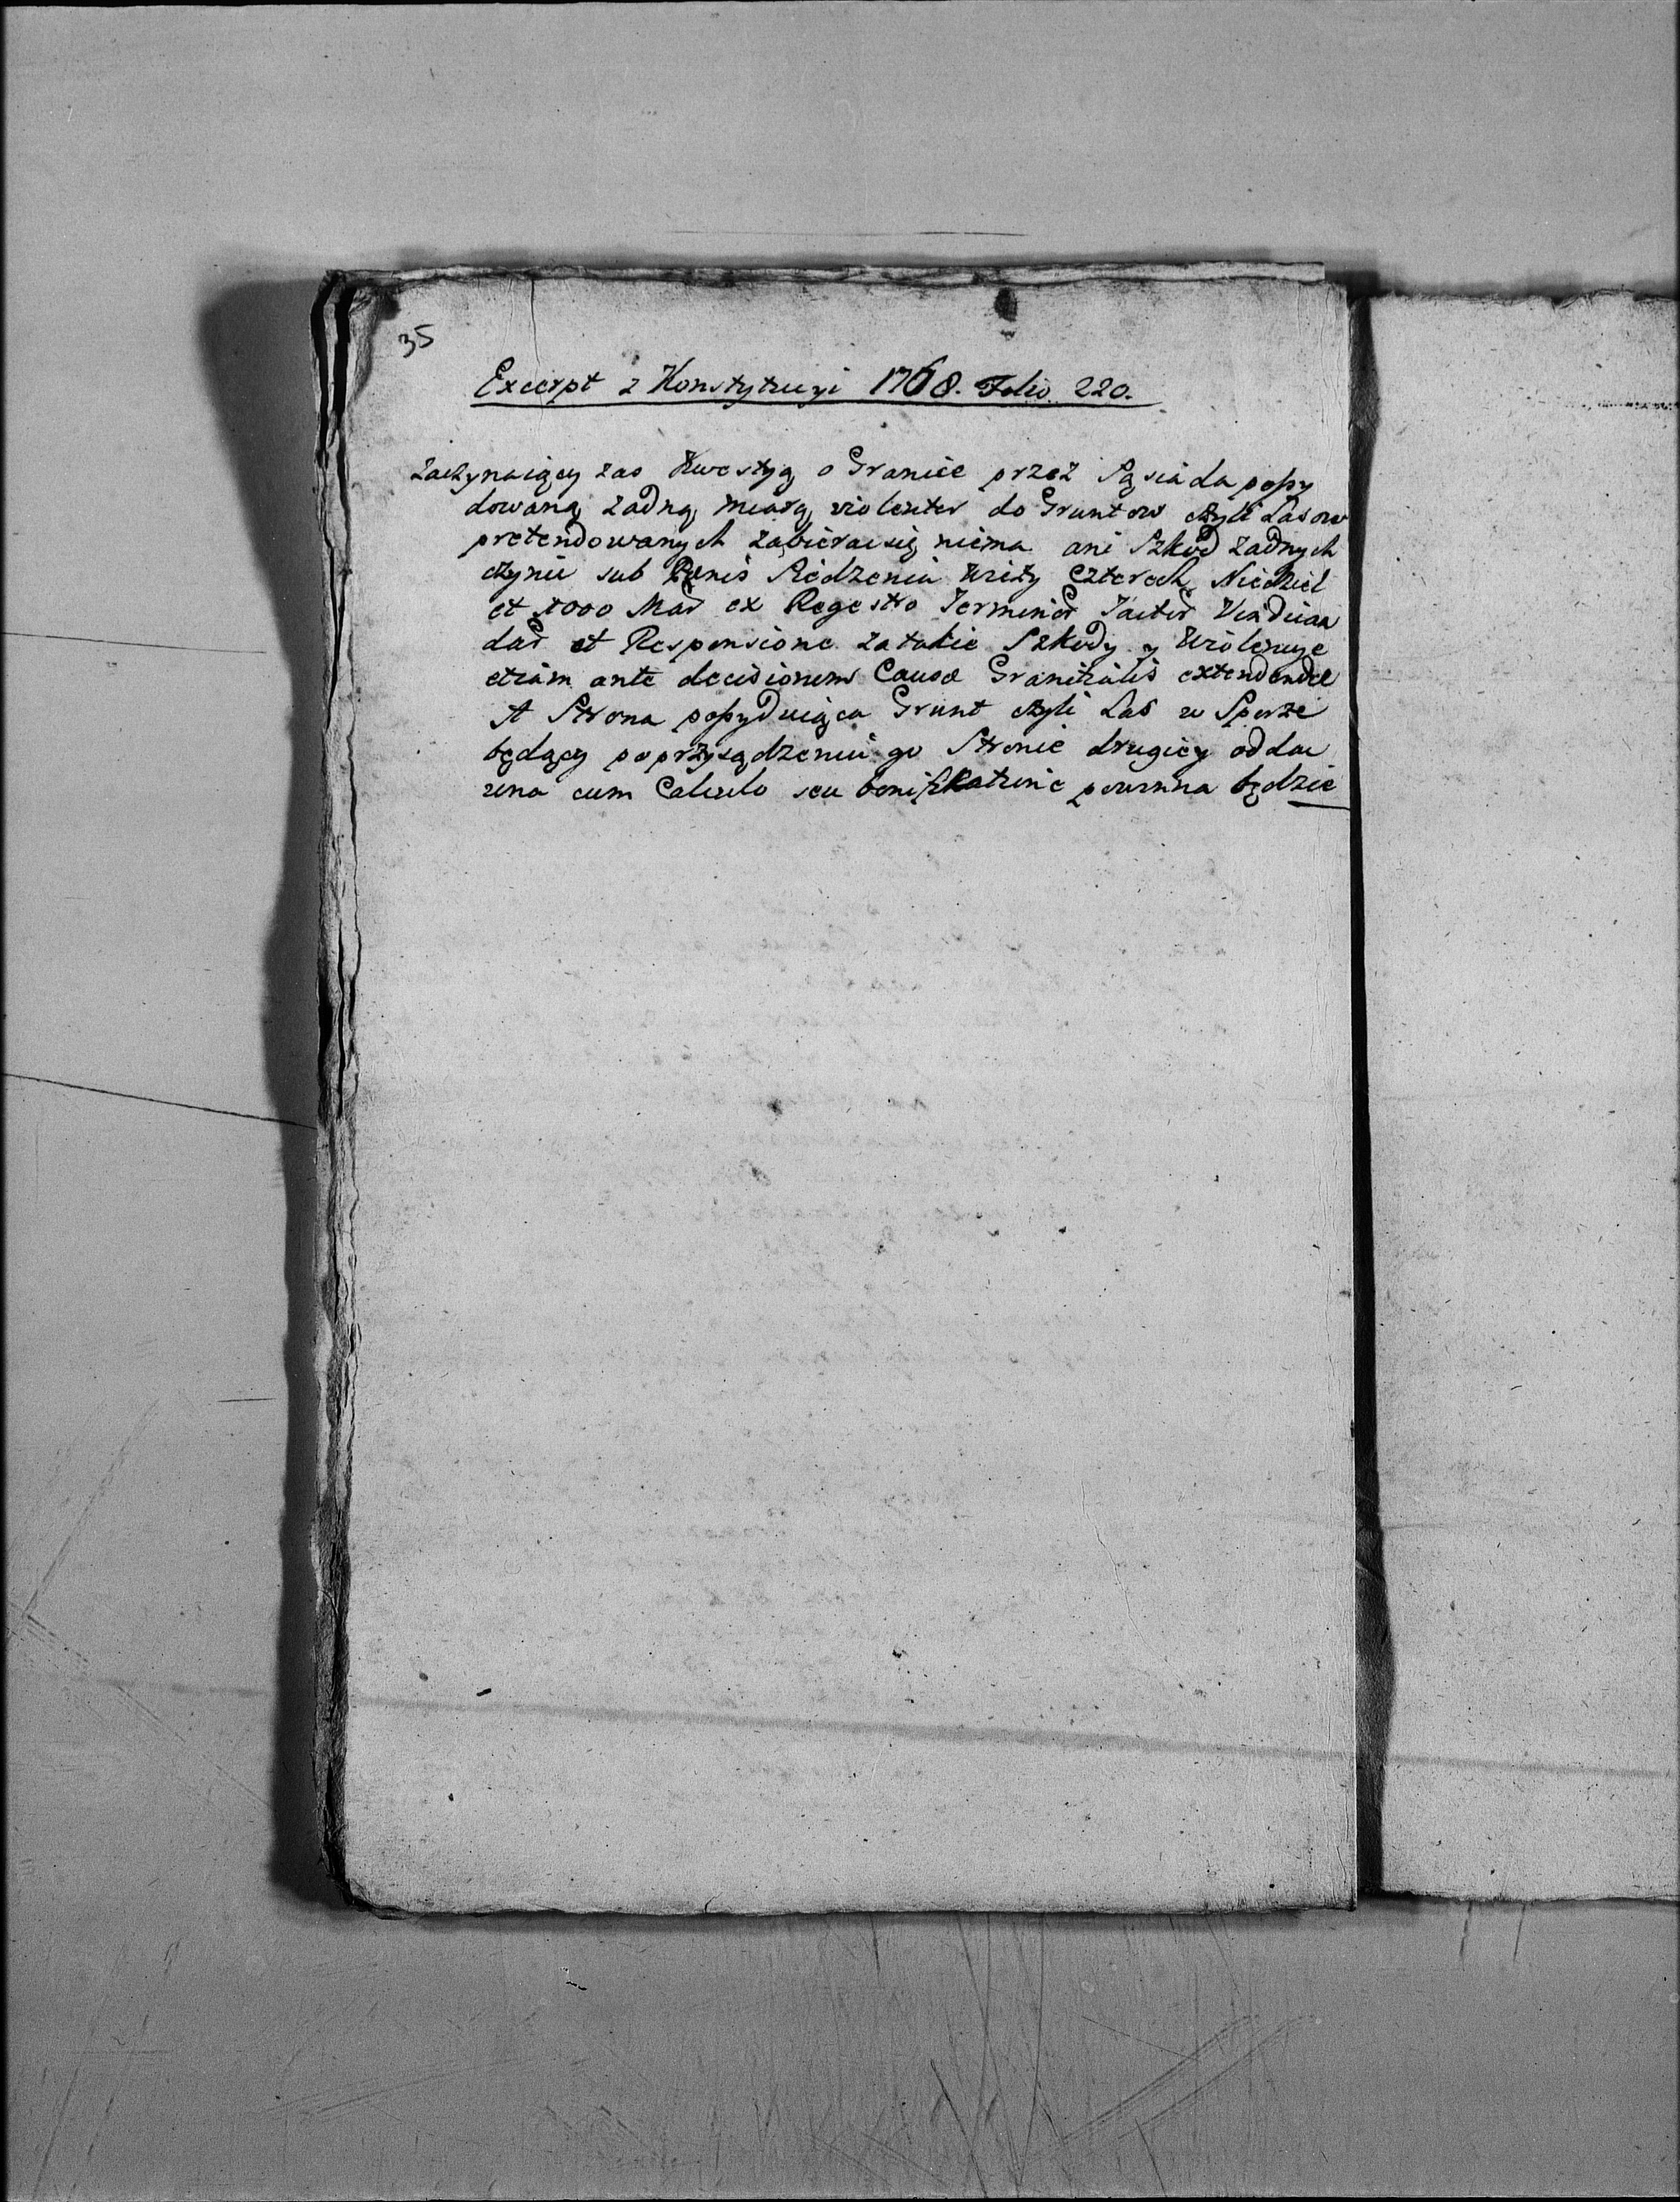 35
Excerpt z Konstytucyi 1768. Folio 220.
Zaczynaiący zas Kwestyą o Granice przez Sąsiada possy
dowaną żadną miarą violenter do Gruntow czyli Lasow
pretendowanych zabierac się niema ani Szkod żadnych
czynic sub Penis Siedzenia Wieży czterech Niedziel
et 1000 Mar ex Regestro Termini Tacti
dar et Responsione za takie Szkody y Wiolencye
etiam ante decisionem Causæ Granitialis extendendæ
A Strona possyduiąca Grunt czyli Las w Sporze
będący po przysądzeniu go Stronie drugiey odda
cum Calculo seu bonifikatione powinna będzie